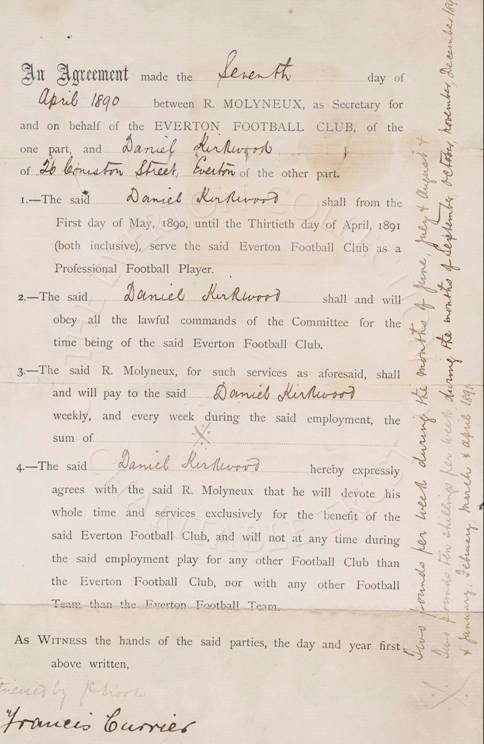 An Agreement made the Seventh day of
April 1890 between R. MOLYNEUX, as Secretary for
and on behalf of the EVERTON FOOTBALL CLUB, of the
one part, and Daniel Kirkwood
of 26 Coniston Street, Everton of the other part.
1.—The said Daniel Kirkwood shall from the
First day of May, 1890, until the Thirtieth day of April, 1891
(both inclusive), serve the said Everton Football Club as a
Professional Football Player.
2.—The said Daniel Kirkwood shall and will
obey all the lawful commands of the Committee for the
time being of the said Everton Football Club.
3.—The said R. Molyneux, for such services as aforesaid, shall
and will pay to the said Daniel Kirkwood
weekly, and every week during the said employment, the
sum of ※
4.—The said Daniel Kirkwood hereby expressly
agrees with the said R. Molyneux that he will devote his
whole time and services exclusively for the benefit of the
said Everton Football Club, and will not at any time during
the said employment play for any other Football Club than
the Everton Football Club, nor with any other Football
Team than the Everton Football Team.
AS WITNESS the hands of the said parties, the day and year first
above written,
by
Francis Currier
Two pounds per week during the months of June, July & August &
Two pounds ten shillings per week during the months of September October, November, December 1890
& January, February March & April 1891
THE EVERTON COLLECTION
CHARITABLE TRUST